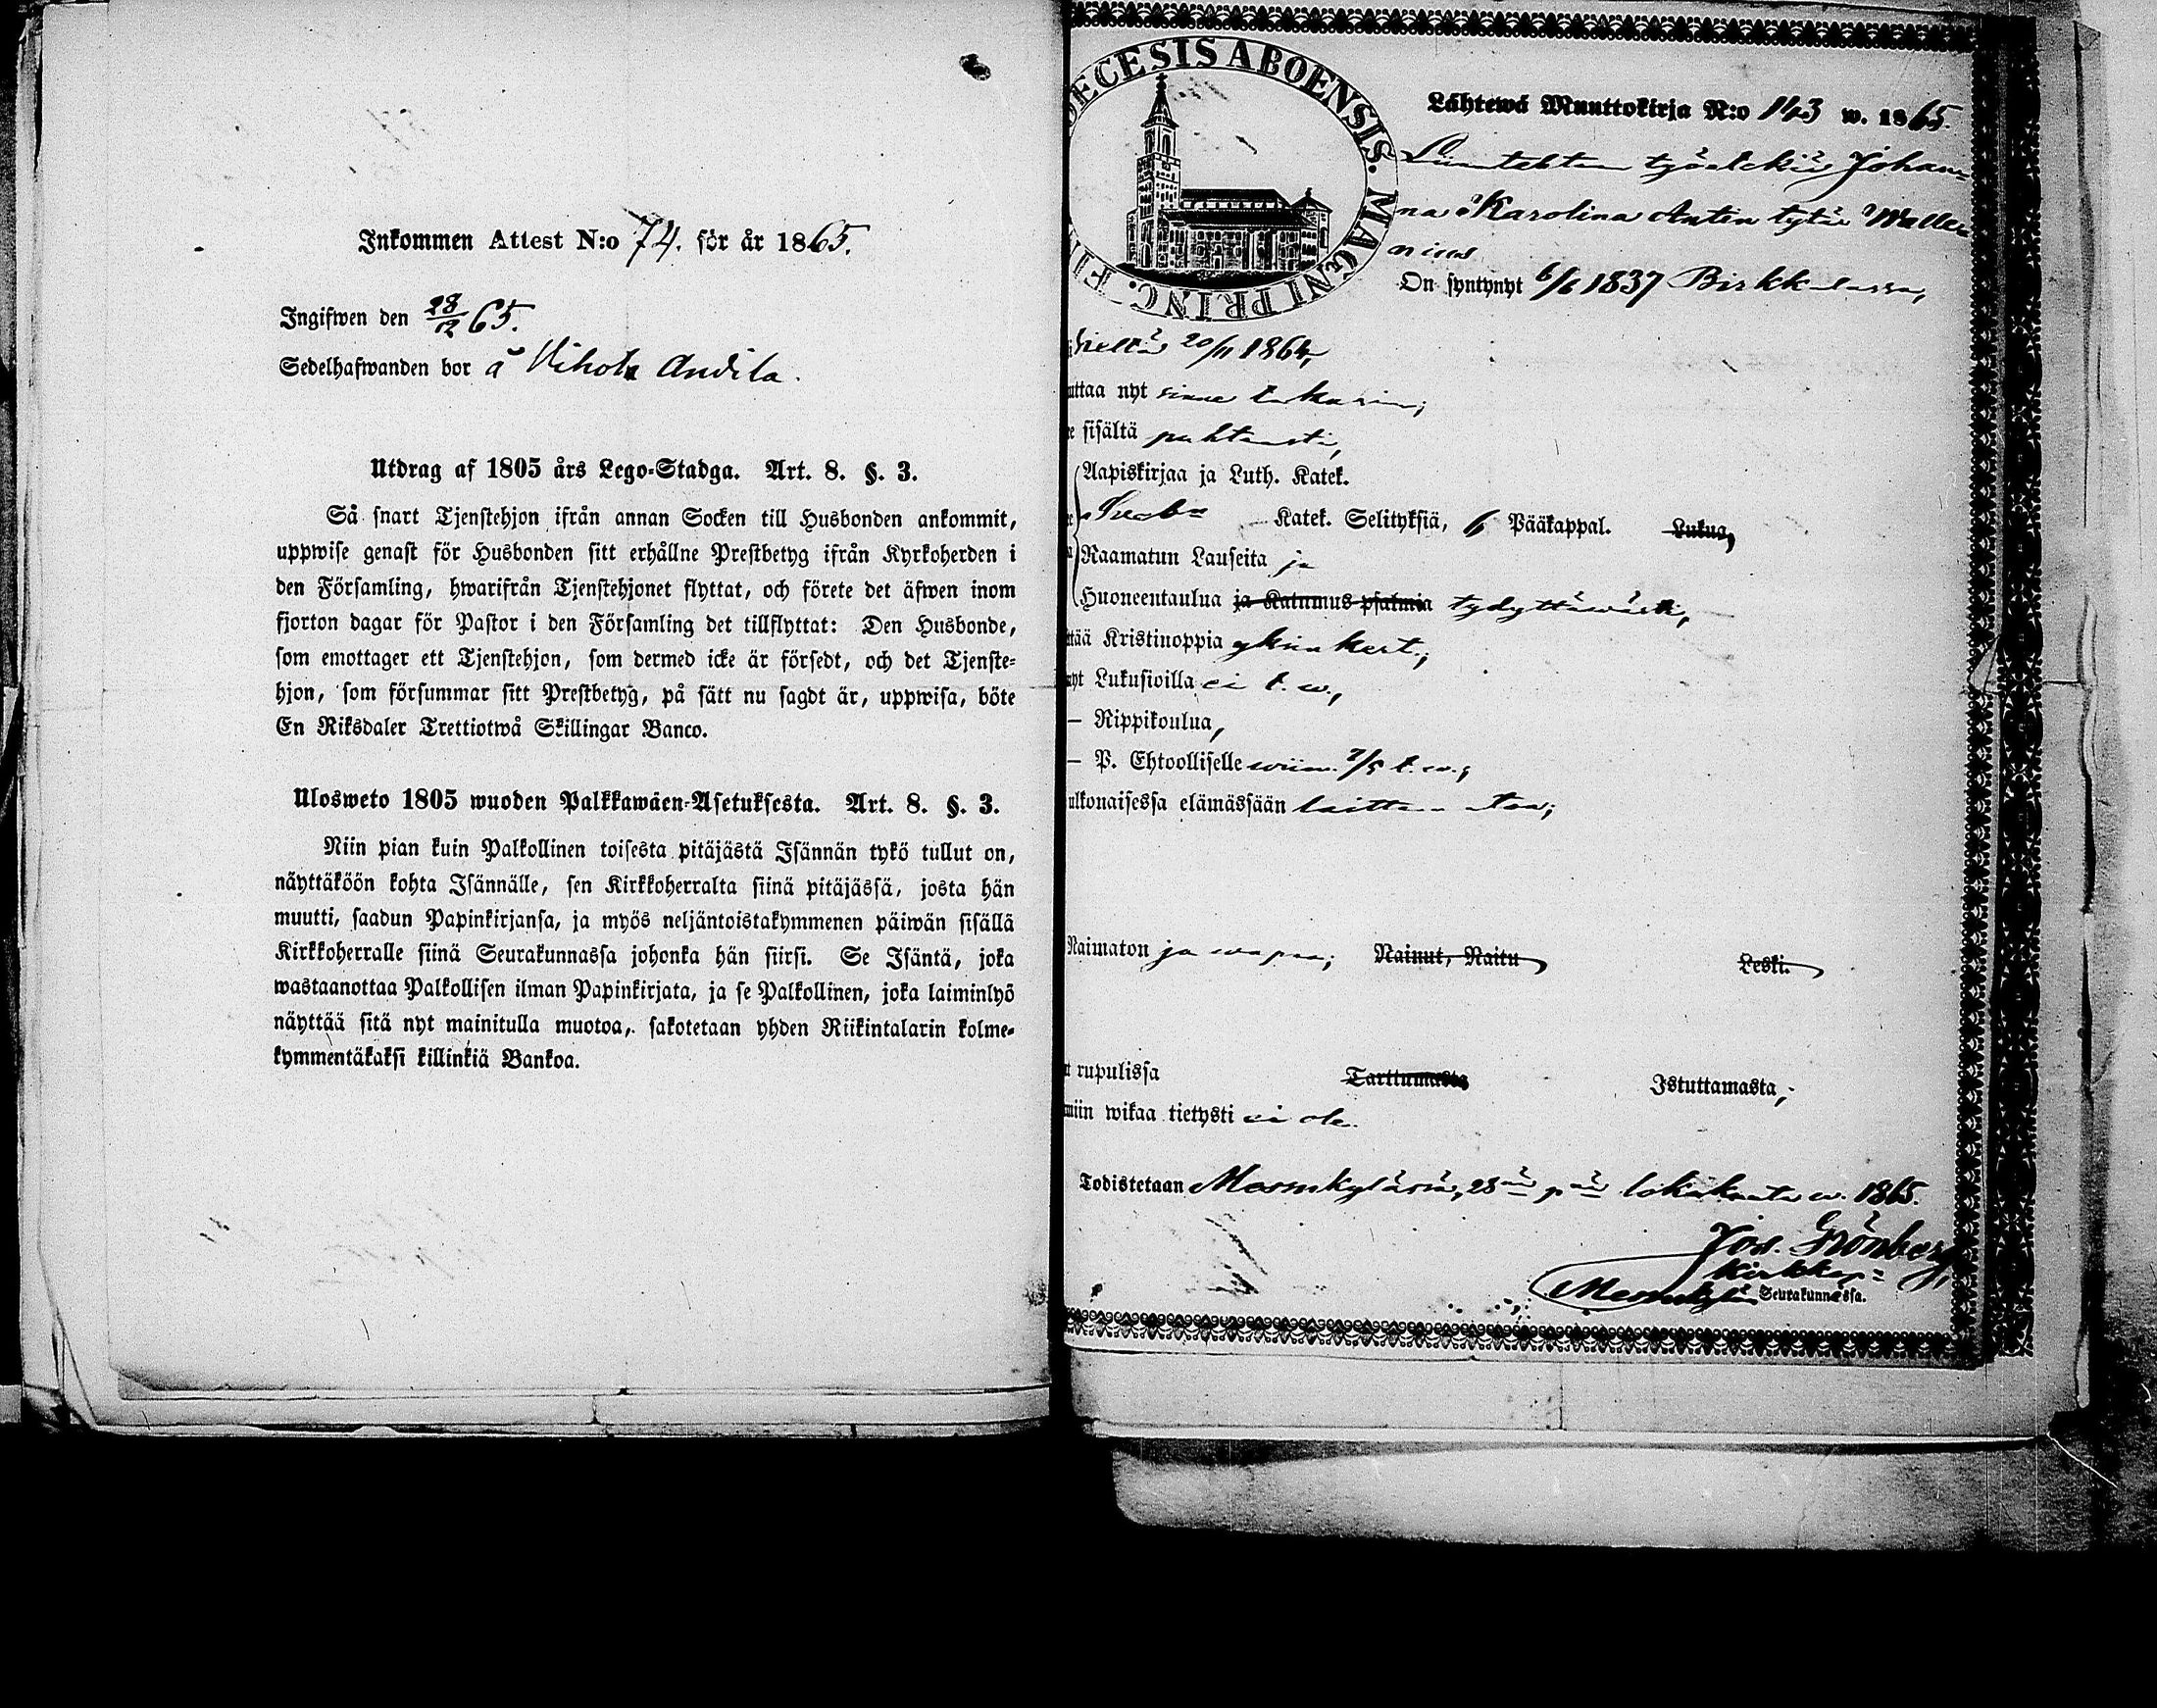 Inkommen Attest N:o 74. för år 1865.
Ingifwen den 28/12 65.
Sedelhafwanden bor å Nihola Andila.
Utdrag af 1805 års Lego-Stadga. Art. 8. §. 3.
Så snart Tjenstehjon ifrån annan Socken till Husbonden ankommit,
uppwise genast för Husbonden sitt erhållne Prestbetyg ifrån Kyrkoherden i
den Församling, hwarifrån Tjenstehjonet flyttat, och förete det äfwen inom
fjorton dagar för Pastor i den Församling det tillflyttat: Den Husbonde,
som emottager ett Tjenstehjon, som dermed icke är försedt, och det Tjenste-
hjon, som försummar sitt Prestbetyg, på sätt nu sagdt är, uppwisa, böte
En Riksdaler Trettiotwå Skillingar Banco.
Ulosweto 1805 wuoden Palkkawäen-Asetuksesta. Art. 8. §. 3.
Niin pian kuin Palkollinen toisesta pitäjästä Isännän tykö tullut on,
näyttäköön kohta Isännälle, sen Kirkkoherralta siinä pitäjässä, josta hän
muutti, saadun Papinkirjansa, ja myös neljäntoistakymmenen päiwän sisällä
Kirkkoherralle siinä Seurakunnassa johonka hän siirsi. Se Isäntä, joka
wastaanottaa Palkollisen ilman Papinkirjata, ja se Palkollinen, joka laiminlyö
näyttää sitä nyt mainitulla muotoa, sakotetaan yhden Riikintalarin kolme-
kymmentäkaksi killinkiä Bankoa.
DECESIS ABOENSIS. MAGNI PRINC. FI
Lähtewä Muuttokirja N:o 143 w. 1865.
työ Johan=
na Karolina Antin tytär Walle=
nius
On syntynyt 6/6 1837 Birkkalassa,
20/11 1864,
uttaa nyt sinne takasin;
e sisältä puhtaasti,
Aapiskirjaa ja Luth. Katek.
Katek. Selityksiä, 6 Pääkappal. Lukua,
Raamatun Lauseita ja
Huoneentaulua ja Katumus-psalmia tydyttäwästi,
ttää Kristinoppia yksinkert.;
nyt Lukusioilla ei t. w.,
— Rippikoulua,
— P. Ehtoolliselle wiim. 7/5 t. w.;
ulkonaisessa elämässään laittamatoa;
Naimaton ja wapaa; Nainut, Naitu Leski.
t rupulissa Tarttumasta Istuttamasta,
miin wikaa tietysti ei ole.
Todistetaan Messukylässä, 28nä pnä lokakuuta w. 1865.
Jos. Grönberg,
Kirkkoh=
Messukylän Seurakunnassa.